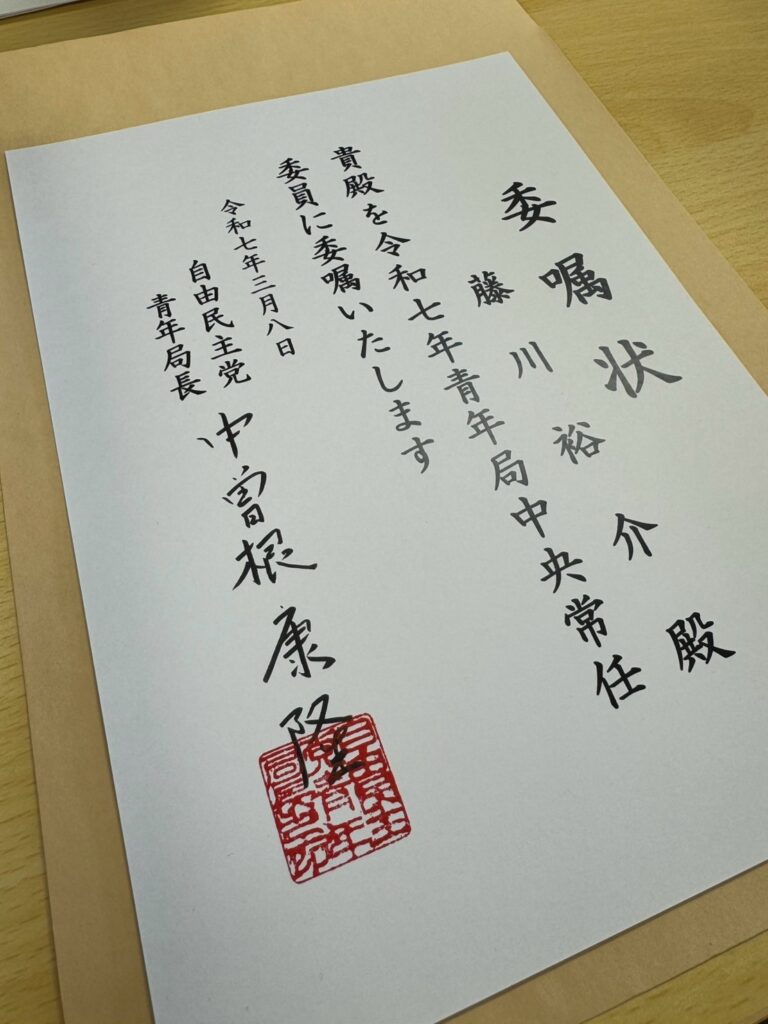 委嘱状
藤川裕介 殿
貴殿を令和七年青年局中央常任
委員に委嘱いたします
令和七年三月八日
自由民主党
青年局長
中曽根康隆